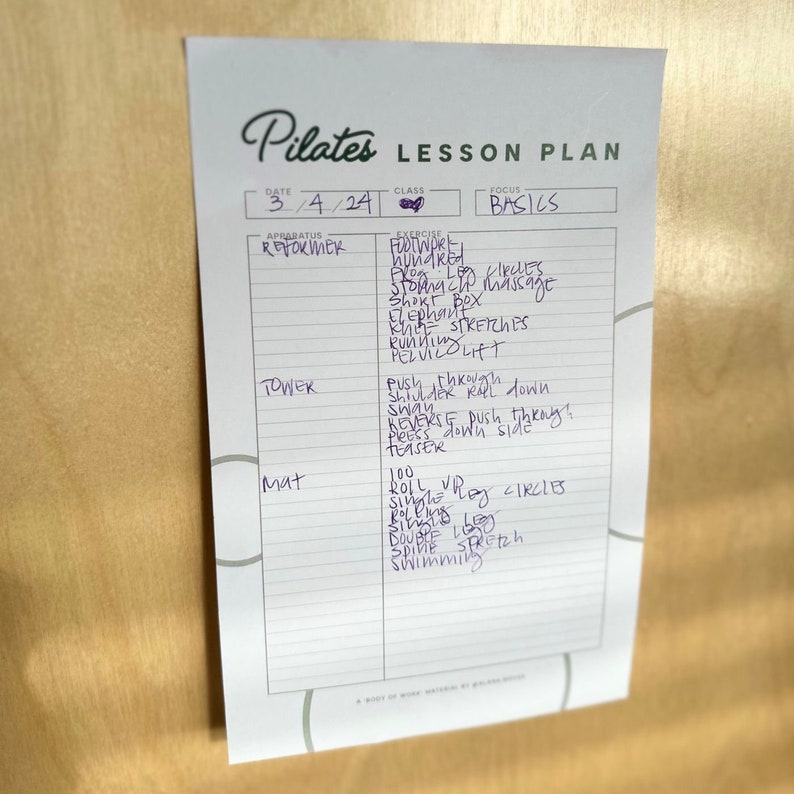 Pilates LESSON PLAN
DATE CLASS FOCUS
3/4/24 BASICS
APPARATUS EXERCISE
REFORMER FOOTWORK
hundred
FROG. LEG CIRCLES
STOMACH MASSAGE
SHORT BOX
ELEPHANT
KNEE STRETCHES
RUNNING
PELVIC LIFT
TOWER PUSH through
SHOULDER ROLL down
SWAN
REVERSE PUSH through
PRESS down SIDE
TEASER
Mat 100
ROLL UP
SINGLE LEG CIRCLES
ROLLING
SINGLE LEG
DOUBLE LEG
SPINE STRETCH
SWIMMING
A 'BODY OF WORK' MATERIAL BY